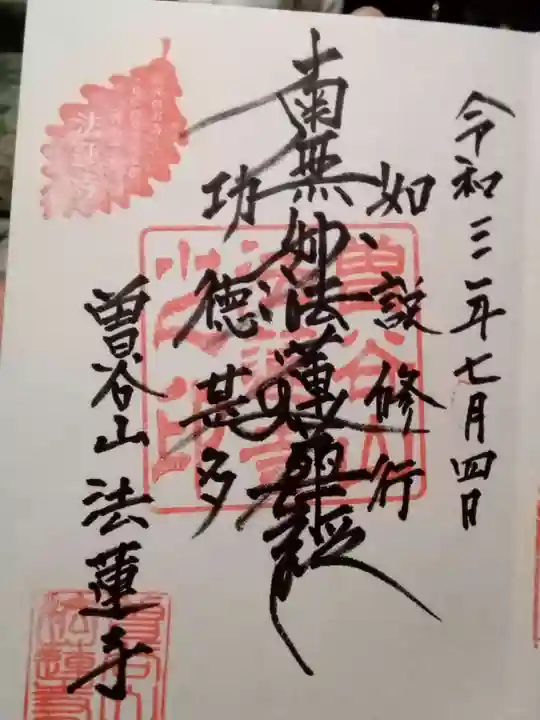 令和三年七月四日
如説修行
南無妙法蓮華経
功徳甚多
曽谷山法蓮寺